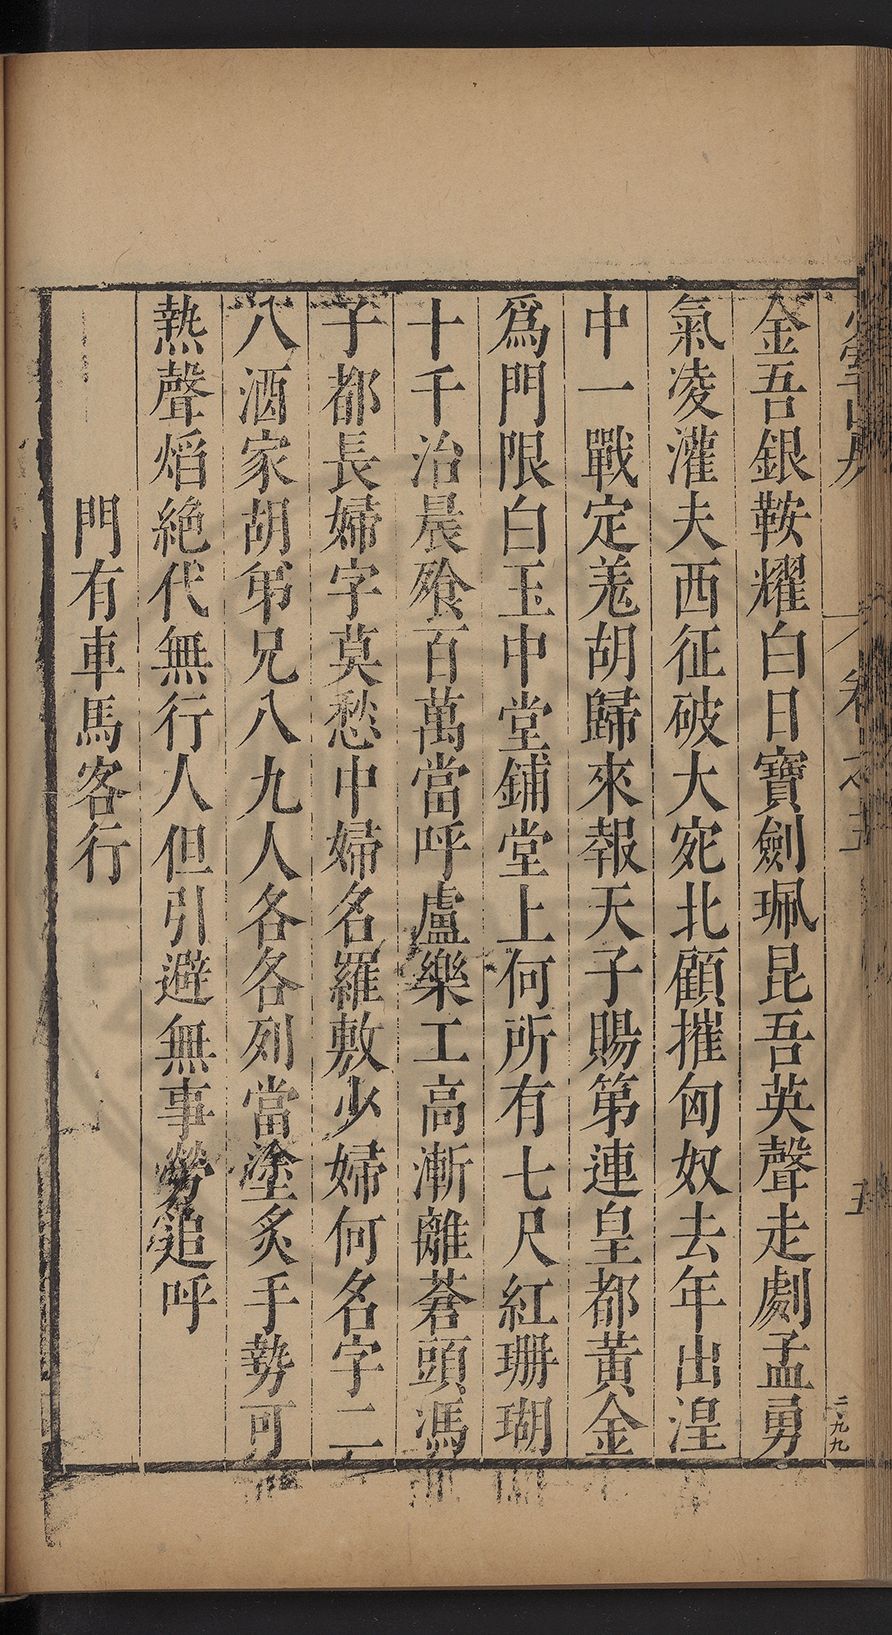 金吾銀鞍耀白日寶劍珮昆吾英聲走劇孟勇
氣凌灌夫西征破大宛北顧摧匈奴去年出湟
中一戰定羗胡歸來報天子賜第連皇都黃金
爲門限白玉中堂鋪堂上何所有七尺紅珊瑚
十千治晨飱百萬當呼盧樂工高漸離蒼頭馮
子都長婦字莫愁中婦名羅敷少婦何名字二
八酒家胡弟兄八九人各各列當塗炙手勢可
熱聲熖絶代無行人但引避無事勞追呼
門有車馬客行